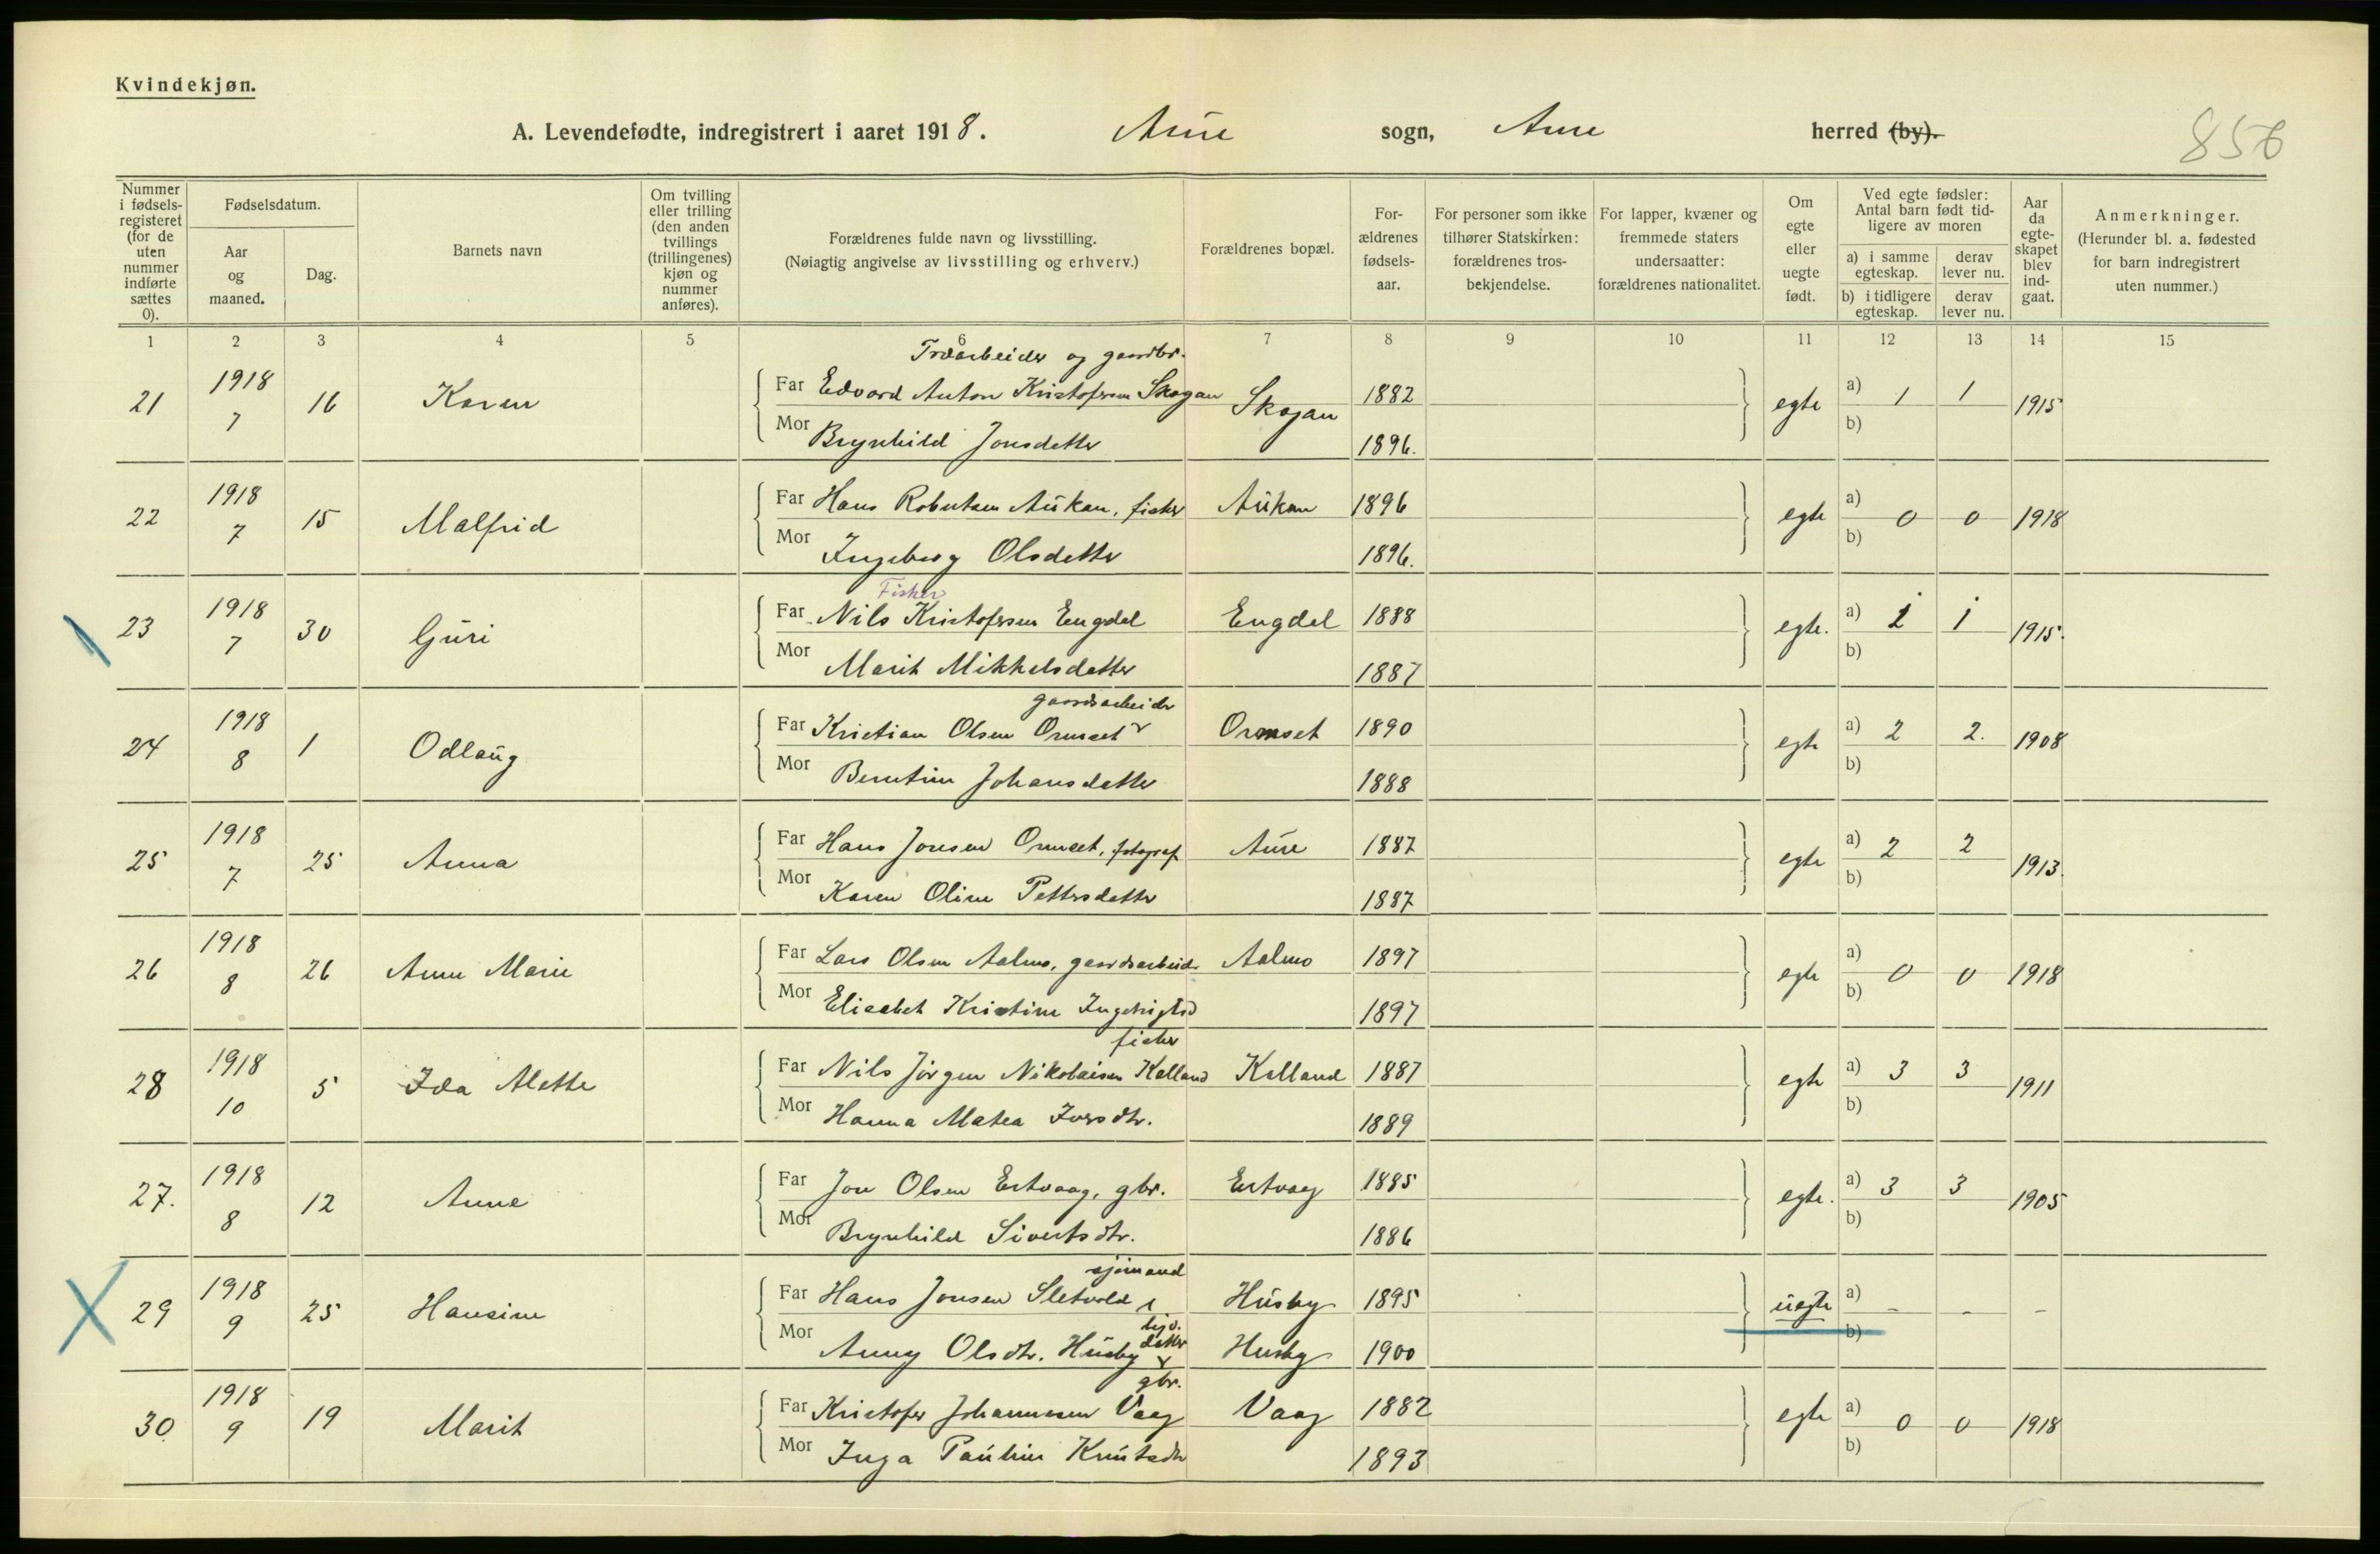 Kvindekjøn.
A. Levendefødte, indregistrert i aaret 1918. Aure sogn, Aure herred (by).
856
Nummer i fødsels-registeret (for de uten nummer indførte sættes 0).
Fødselsdatum.
Aar og maaned.
Dag.
Barnets navn
Om tvilling eller trilling (den anden tvillings (trillingenes) kjøn og nummer anføres).
Forældrenes fulde navn og livsstilling.
(Nøiagtig angivelse av livsstilling og erhverv.)
Forældrenes bopæl.
For-ældrenes fødsels-aar.
For personer som ikke tilhører Statskirken: forældrenes tros-bekjendelse.
For lapper, kvæner og fremmede staters undersaatter: forældrenes nationalitet.
Om egte eller uegte født.
Ved egte fødsler: Antal barn født tid-ligere av moren
a) i samme egteskap. derav lever nu.
b) i tidligere egteskap. derav lever nu.
Aar da egte-skapet blev ind-gaat.
Anmerkninger.
(Herunder bl. a. fødested for barn indregistrert uten nummer.)
1 2 3 4 5 6 7 8 9 10 11 12 13 14 15
Træarbeider og gaardbr.
21 1918 7 16 Karen Far Edvard Anton Kristofersen Skogan Skogan 1882 egte a) 1 1 1915
Mor Brynhild Jonsdatter 1896. b)
22 1918 7 15 Malfrid Far Hans Robertsen Aukan, fisker Aukan 1896 egte a) 0 0 1918
Mor Ingeborg Olsdatter 1896. b)
Fisker
23 1918 7 30 Guri Far Nils Kristofersen Engdal Engdal 1888 egte. a) 1 1 1915.
Mor Marit Mikkelsdatter 1887 b)
gaardsarbeider
24 1918 8 1 Odlaug Far Kristian Olsen Ormset Ormset 1890 egte a) 2 2. 1908
Mor Berntine Johansdatter 1888 b)
25 1918 7 25 Anna Far Hans Jonsen Ormset, fotograf Aure 1887 egte a) 2 2 1913.
Mor Karen Oline Pettersdatter 1887 b)
26 1918 8 26 Anne Marie Far Lars Olsen Aalmo, gaardsarbeider Aalmo 1897 egte a) 0 0 1918
Mor Elisabet Kristine Ingebrigtsd 1897 b)
fisker
28 1918 10 5 Ida Alette Far Nils Jörgen Nikolaisen Kalland Kalland 1887 egte a) 3 3 1911
Mor Hanna Matea Iversdtr. 1889 b)
27. 1918 8 12 Anne Far Jon Olsen Ertvaag, gbr. Ertvaag 1885 egte. a) 3 3 1905
Mor Brynhild Sivertsdtr. 1886 b)
sjömand
29 1918 9 25 Hansine Far Hans Jonsen Sletvold Husby 1895 uegte a) - - -
Mor Anny Olsdtr. Husby datter Husby 1900 b)
gbr.
30 1918 9 19 Marit Far Kristofer Johannesen Vaag Vaag 1882 egte a) 0 0 1918
Mor Inga Pauline Knutsdtr 1893 b)